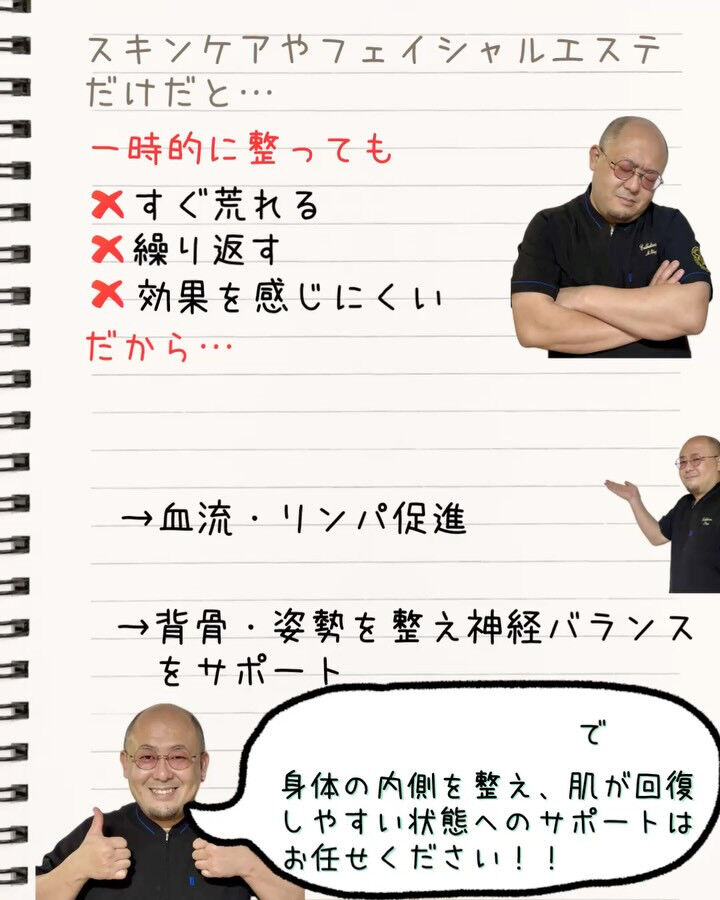 スキンケアやフェイシャルエステ
だけだと…
一時的に整っても
❌すぐ荒れる
❌繰り返す
❌効果を感じにくい
だから…
→血流・リンパ促進
→背骨・姿勢を整え神経バランス
をサポート
で
身体の内側を整え、肌が回復
しやすい状態へのサポートは
お任せください！！